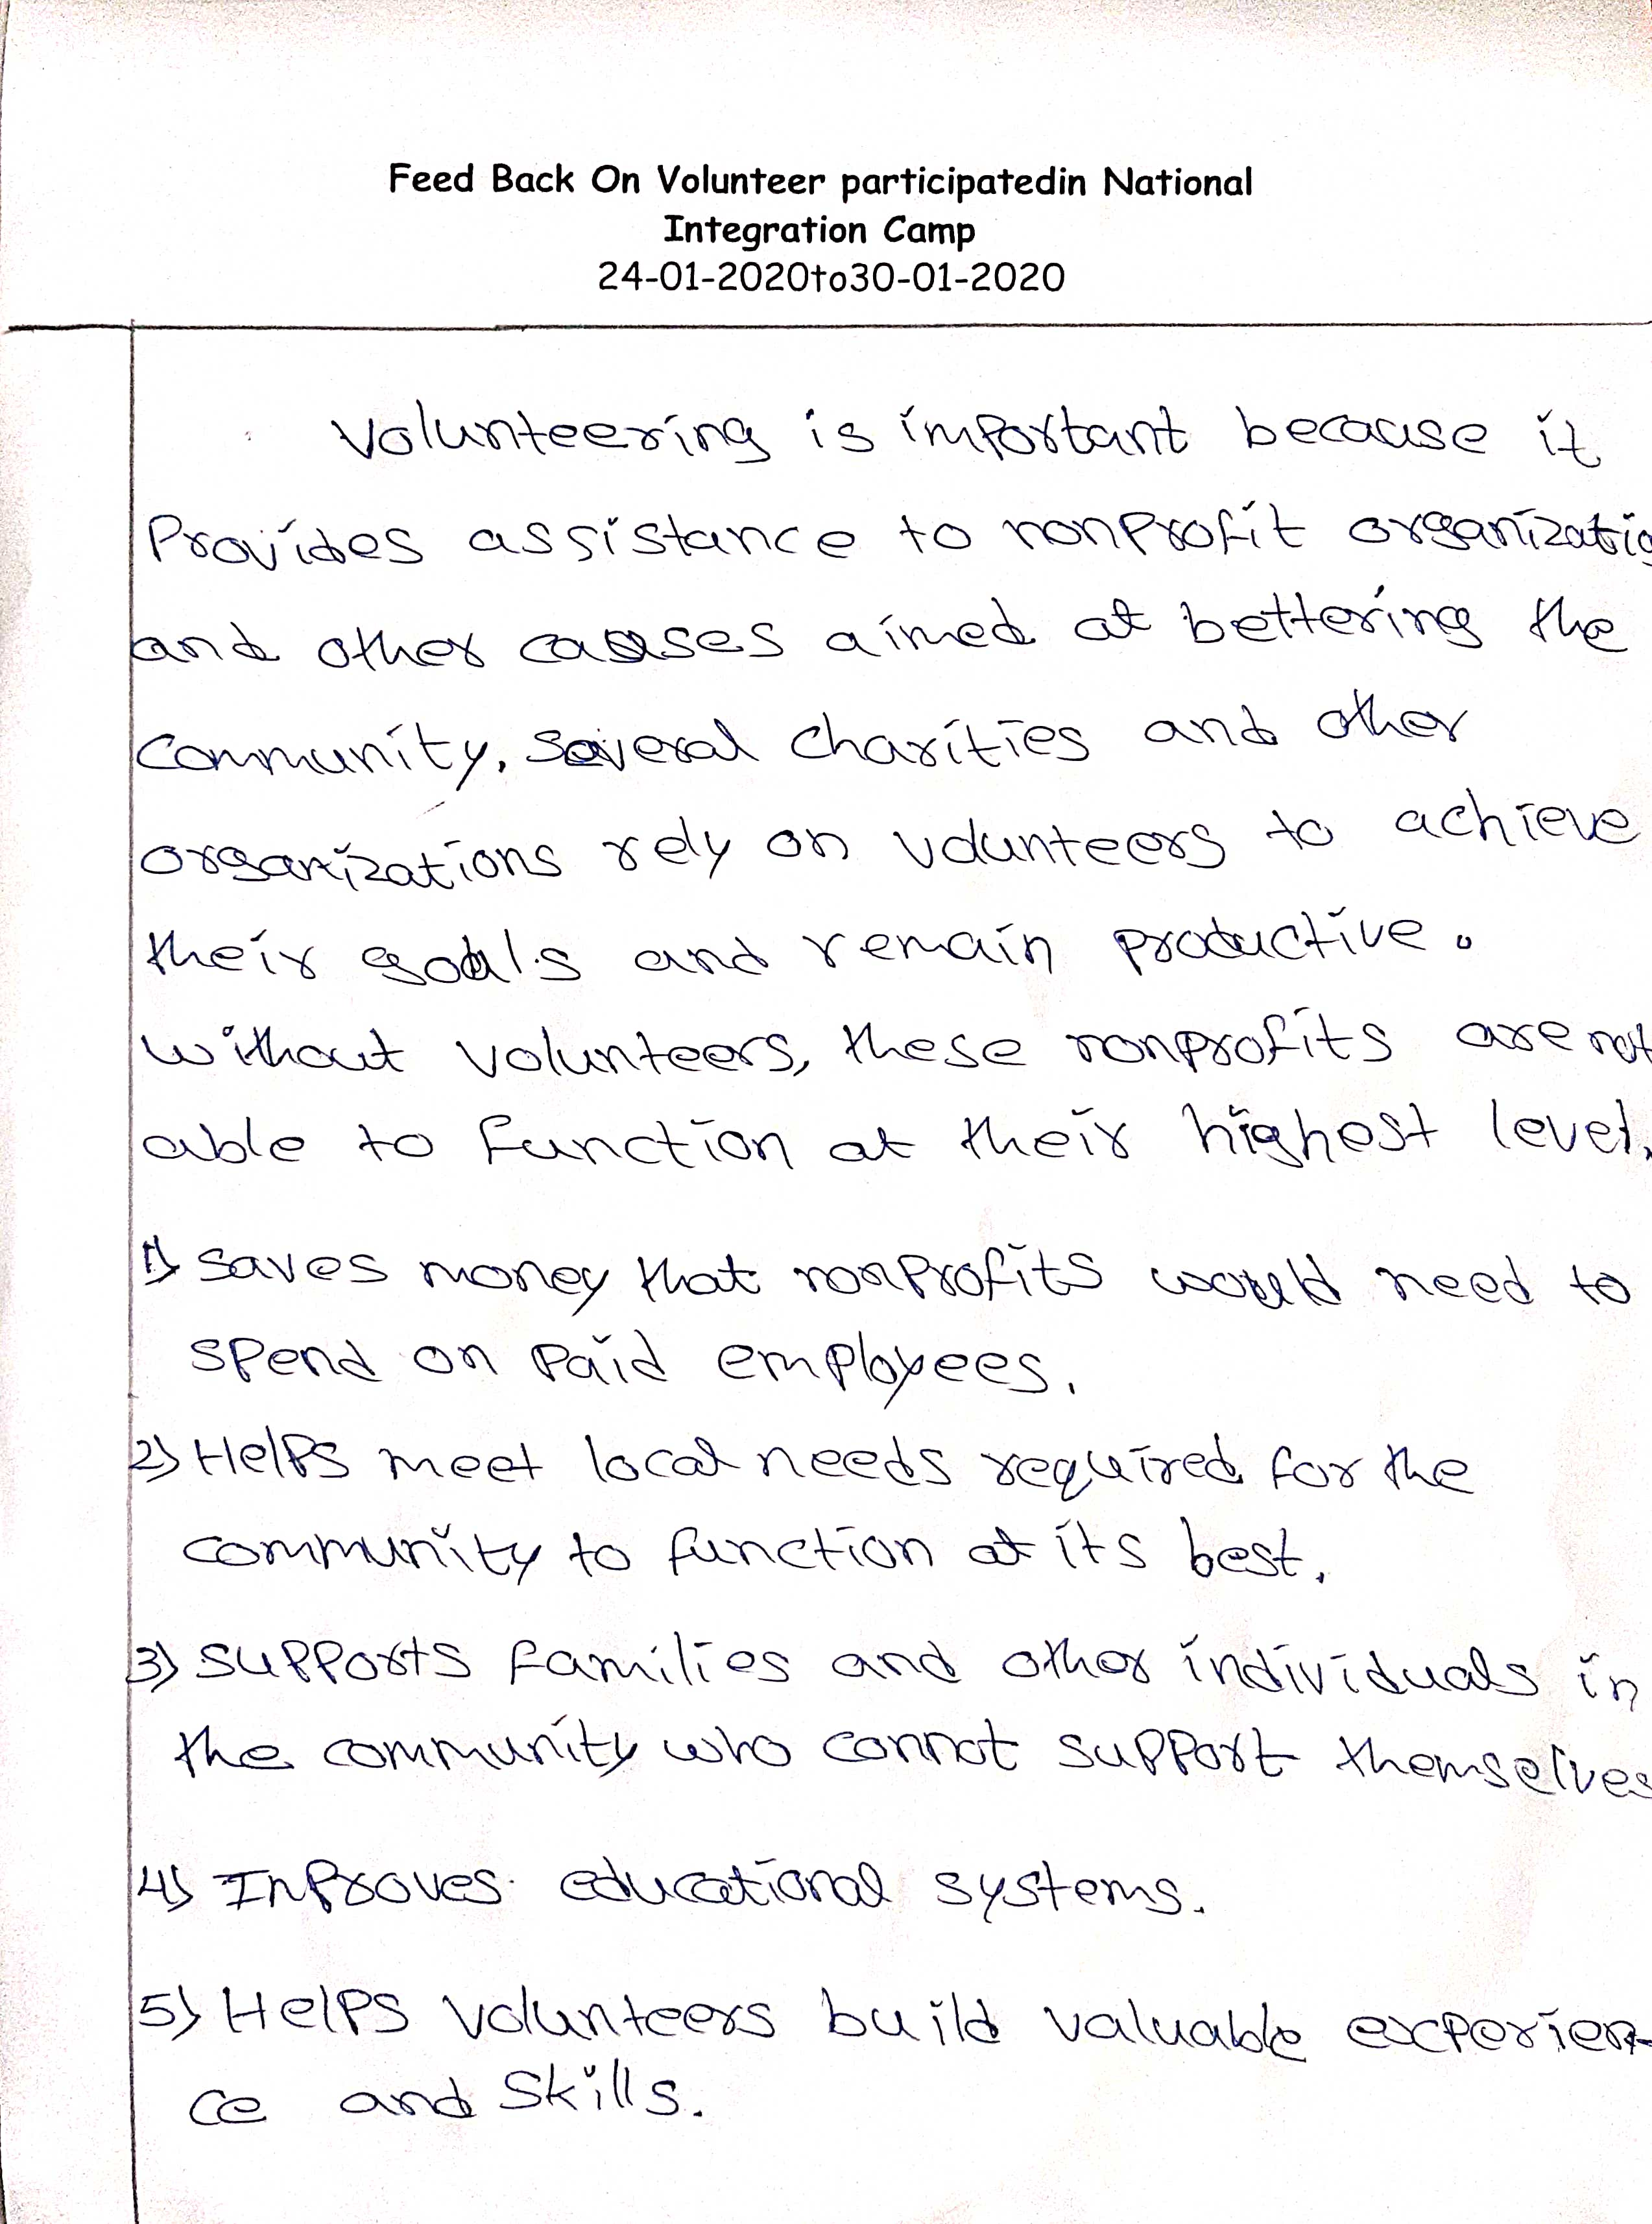 Feed Back On Volunteer participatedin National
Integration Camp
24-01-2020to30-01-2020
Volunteering is important because it
Provides assistance to nonprofit organizatio
and other causes aimed at bettering the
Community, Several charities and other
organizations rely on volunteers to achieve
their goals and remain productive.
without volunteers, these nonprofits are not
able to function at their highest level.
1) Saves money that nonprofits would need to
spend on paid employees.
2) Helps meet local needs required for the
community to function at its best.
3) Supports families and other individuals in
the community who connot support themselves
4) Inproves educational systems.
5) Helps volunteers build valuable experien-
ce and Skills.